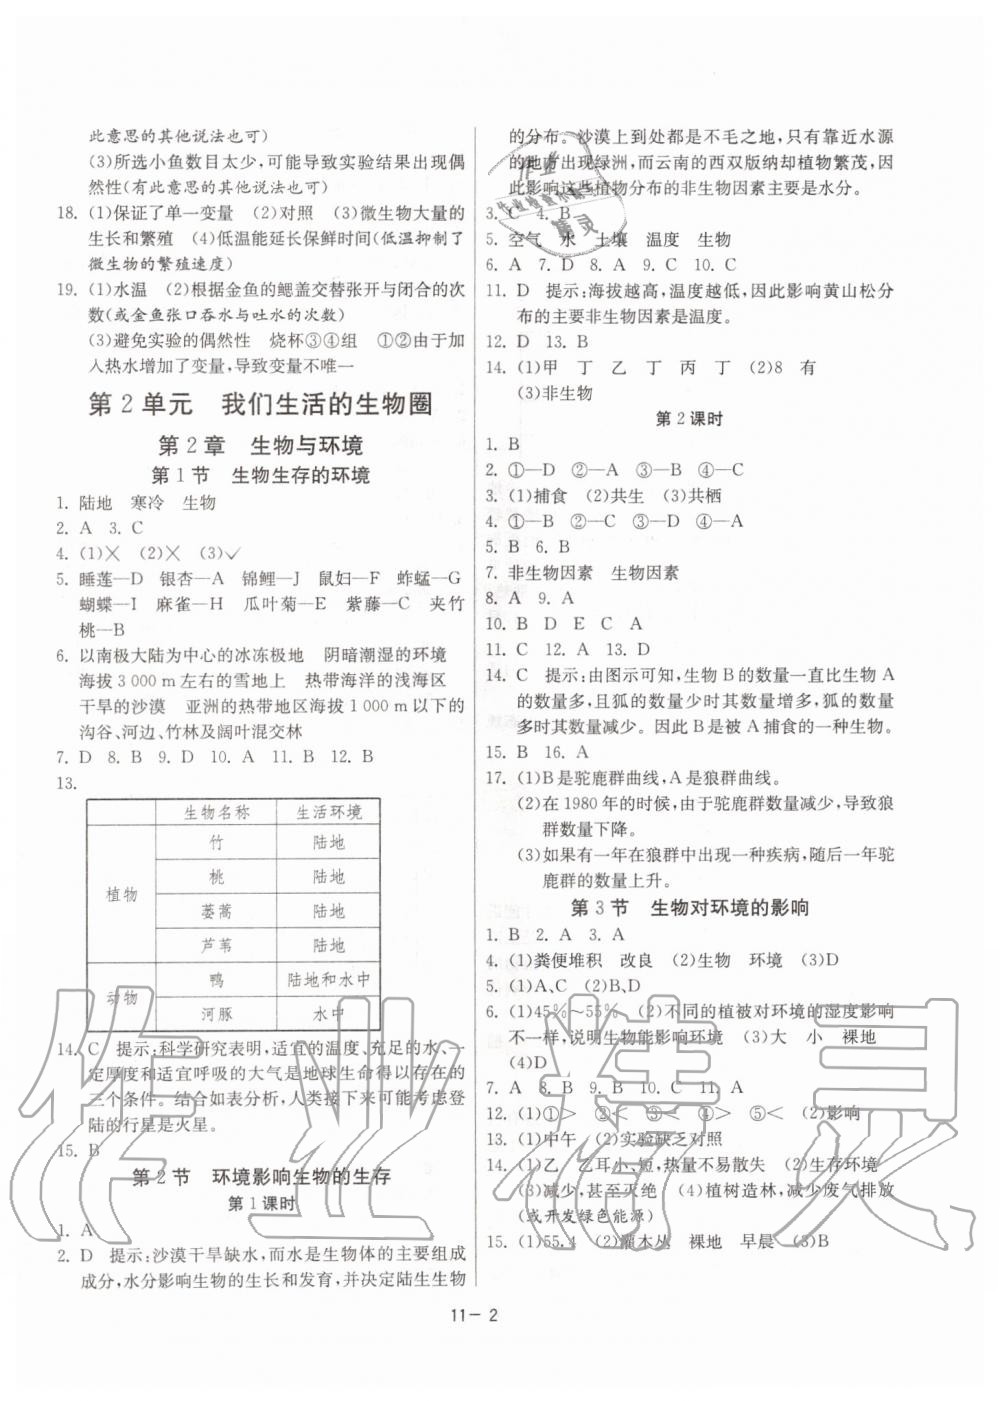 此意思的其他说法也可)
(3)所选小鱼数目太少,可能导致实验结果出现偶
然性(有此意思的其他说法也可)
18. (1)保证了单一变量 (2)对照 (3)微生物大量的
生长和繁殖 (4)低温能延长保鲜时间(低温抑制了
微生物的繁殖速度)
19. (1)水温 (2)根据金鱼的鳃盖交替张开与闭合的次
数(或金鱼张口吞水与吐水的次数)
(3)避免实验的偶然性 烧杯③④组 ①②由于加
入热水增加了变量,导致变量不唯一
第2单元 我们生活的生物圈
第2章 生物与环境
第1节 生物生存的环境
1. 陆地 寒冷 生物
2. A 3. C
4. (1)╳ (2)╳ (3)✓
5. 睡莲—D 银杏—A 锦鲤—J 鼠妇—F 蚱蜢—G
蝴蝶—I 麻雀—H 瓜叶菊—E 紫藤—C 夹竹
桃—B
6. 以南极大陆为中心的冰冻极地 阴暗潮湿的环境
海拔3 000 m左右的雪地上 热带海洋的浅海区
干旱的沙漠 亚洲的热带地区海拔1 000 m以下的
沟谷、河边、竹林及阔叶混交林
7. D 8. B 9. D 10. A 11. B 12. B
13.
生物名称 生活环境
植物 竹 陆地
桃 陆地
蒌蒿 陆地
芦苇 陆地
动物 鸭 陆地和水中
河豚 水中
14. C 提示:科学研究表明,适宜的温度、充足的水、一
定厚度和适宜呼吸的大气是地球生命得以存在的
三个条件。结合如表分析,人类接下来可能考虑登
陆的行星是火星。
15. B
第2节 环境影响生物的生存
第1课时
1. A
2. D 提示:沙漠干旱缺水,而水是生物体的主要组成
成分,水分影响生物的生长和发育,并决定陆生生物
的分布。沙漠上到处都是不毛之地,只有靠近水源
的地方出现绿洲,而云南的西双版纳却植物繁茂,因
此影响这些植物分布的非生物因素主要是水分。
3. C 4. B
5. 空气 水 土壤 温度 生物
6. A 7. D 8. A 9. C 10. C
11. D 提示:海拔越高,温度越低,因此影响黄山松分
布的主要非生物因素是温度。
12. D 13. B
14. (1)甲 丁 乙 丁 丙 丁 (2)8 有
(3)非生物
第2课时
1. B
2. ①—D ②—A ③—B ④—C
3. (1)捕食 (2)共生 (3)共栖
4. ①—B ②—C ③—D ④—A
5. B 6. B
7. 非生物因素 生物因素
8. A 9. A
10. B D E C A
11. C 12. A 13. D
14. C 提示:由图示可知,生物B的数量一直比生物A
的数量多,且狐的数量少时其数量增多,狐的数量
多时其数量减少。因此B是被A捕食的一种生物。
15. B 16. A
17. (1)B是驼鹿群曲线,A是狼群曲线。
(2)在1980年的时候,由于驼鹿群数量减少,导致狼
群数量下降。
(3)如果有一年在狼群中出现一种疾病,随后一年驼
鹿群的数量上升。
第3节 生物对环境的影响
1. B 2. A 3. A
4. (1)粪便堆积 改良 (2)生物 环境 (3)D
5. (1)A、C (2)B、D
6. (1)45%~55% (2)不同的植被对环境的湿度影响
不一样,说明生物能影响环境 (3)大 小 裸地
(4)D
7. A 8. B 9. B 10. C 11. A
12. (1)①> ②< ③< ④> ⑤< (2)影响
13. (1)中午 (2)实验缺乏对照
14. (1)乙 乙耳小、短,热量不易散失 (2)生存环境
(3)减少,甚至灭绝 (4)植树造林,减少废气排放
(或开发绿色能源)
15. (1)55.4 (2)灌木丛 裸地 早晨 (3)B
11— 2
作业精灵